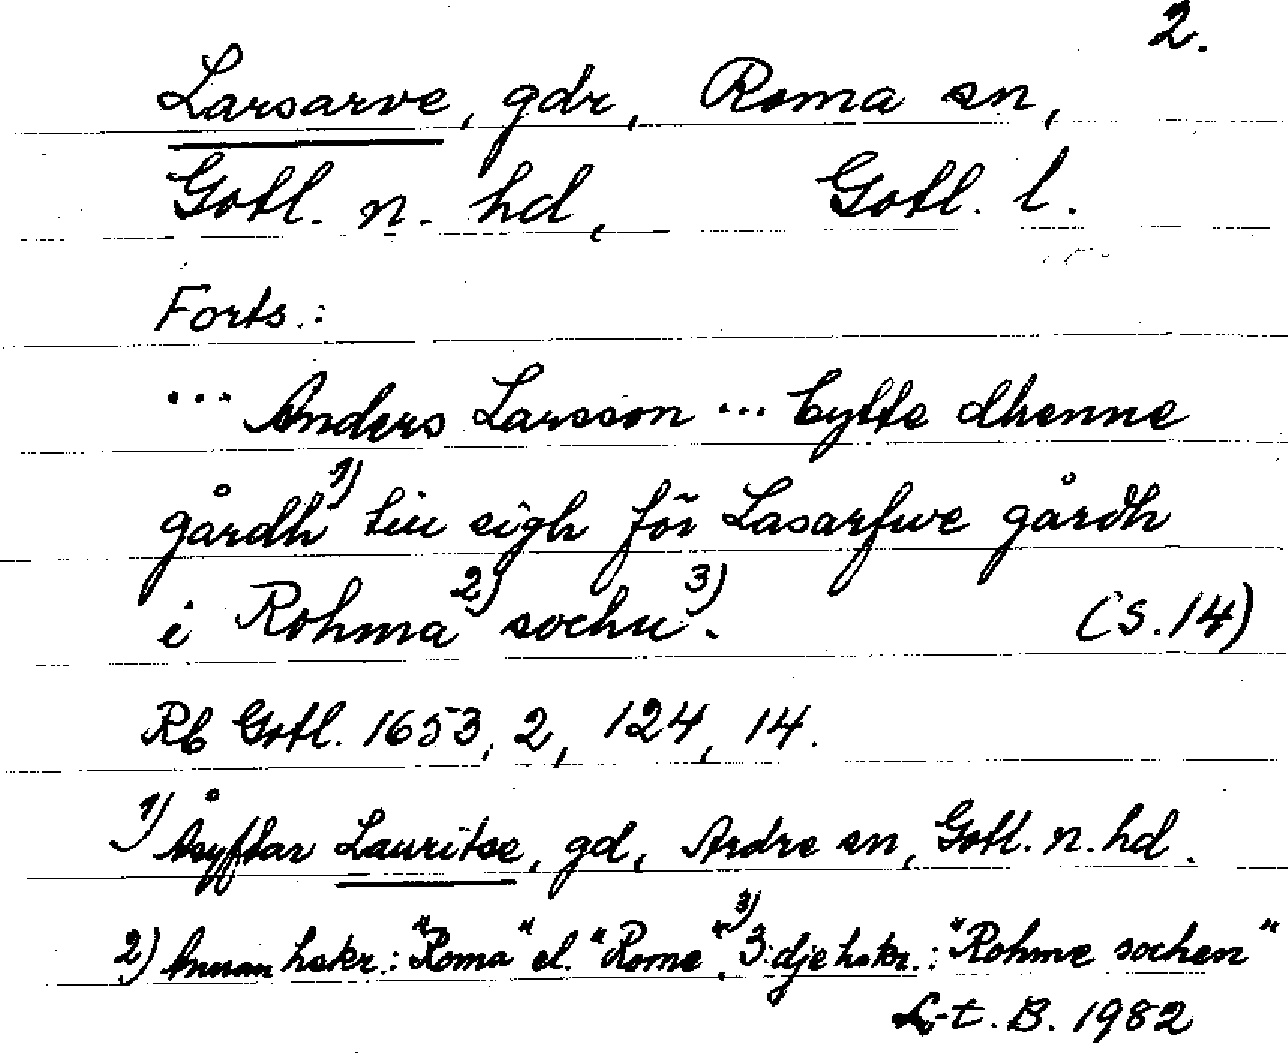 2.
Larsarve, gdr, Roma sn,
Gotl. n. hd, Gotl. l.
Forts.:
... Anders Larsson ... bytte dhenne
gårdh 1) till sigh för Lasarfwe gårdh
i Rohma 2) sochn 3). (S.14)
Rb Gotl. 1653, 2, 124, 14.
1) Åsyftar Lauritse, gd, Ardre sn, Gotl. n. hd.
2) Annan hskr.: "Roma" el. "Rome". 3) 3:dje hskr.: "Rohme sochen"
L-t. B. 1982